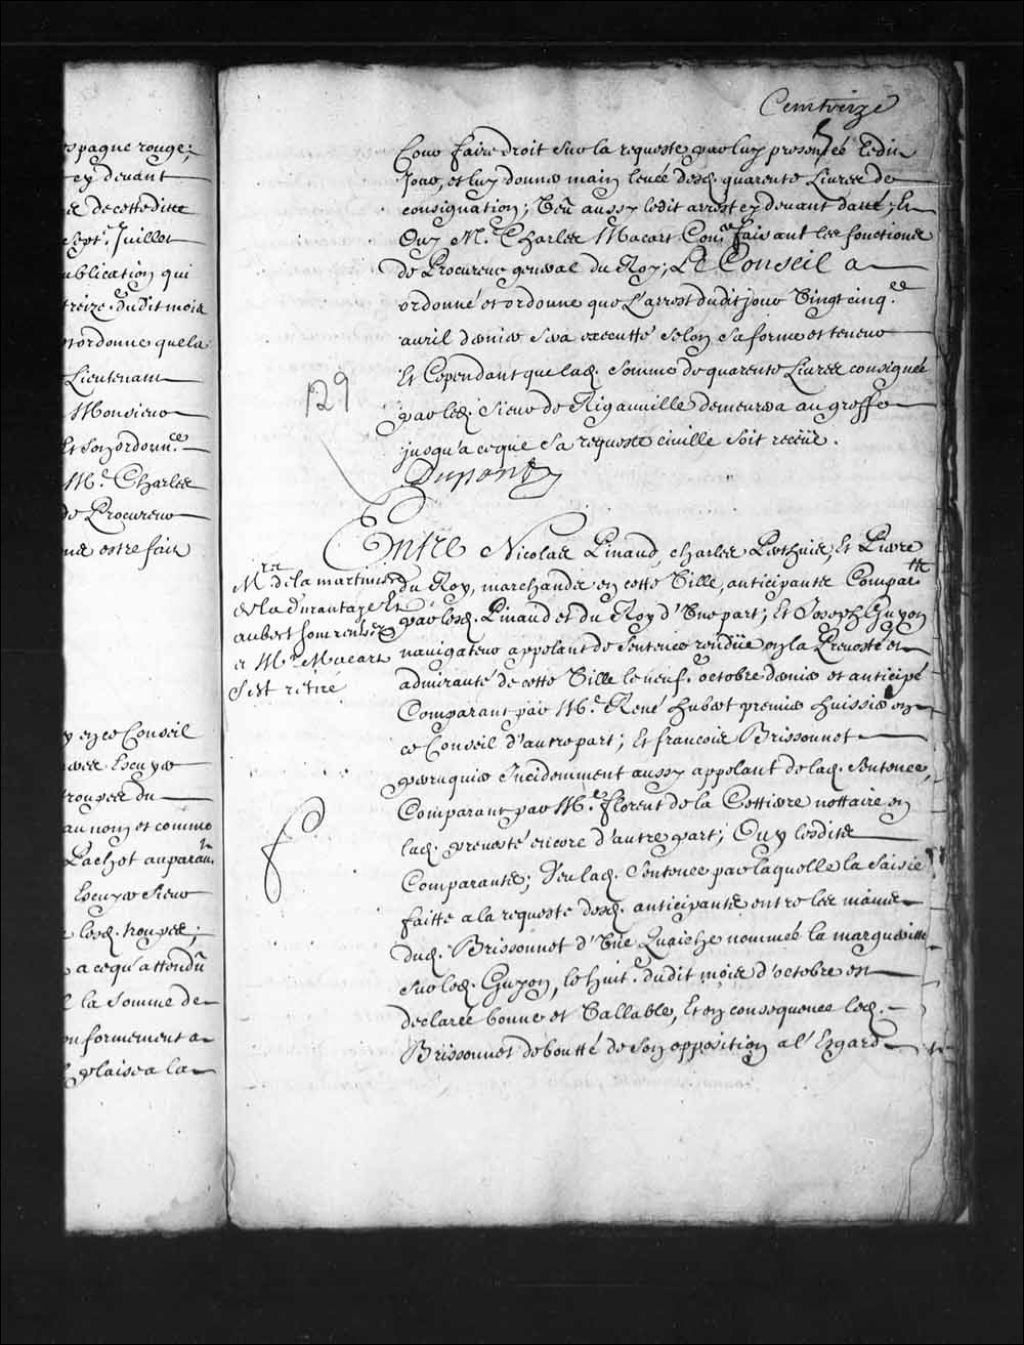 Cent treize
spagne rouge;
cy devant
de cette ditte
sept.e Juillet
ublication qui
treize.e dudit mois
ordonne que la
Lieutenant
Monsieur
Et son ordonn.ce
M.e Charles
de Procureur
estre fait
en ce Conseil
Escuyer
trouppes du
au nom et comme
Pachot auparau.t
Escuyer Sieur
lesd. trouppes;
a ce qu'attendu
la somme de
nformement a
plaise a la
Pour faire droit sur la requeste par luy presentée ledit
Jour, et luy donner main leuée desd. quarente Liures de
consignation; Veu aussy ledit arrest cy deuant datté; Et
Ouy M.e Charles Macart Con.er faisant les fonctions
de Procureur general du Roy; Le Conseil a
ordonné et ordonne que L'arrest dudit jour Vingt cinq.e
auril dernier sera executté selon sa forme et teneur
Et Cependant que lad. somme de quarente Liures consignée
par led. Sieur de Rigauuille demeurera au greffe
jusqu'a ce que sa requeste ciuille soit receüe.
Dupont
129
Entre Nicolas Pinaud, charles Perthuis, Et Pierre
du Roy, marchands en cette Ville, anticipants Compar.tts
par lesd. Pinaud et du Roy d'Vne part; Et Joseph Guyon
nauigateur appelant de sentence rendüe en la Preuosté et
admirauté de cette Ville le neuf.e octobre dernier et anticipé
Comparant par M.e René hubert premier huissier en
ce Conseil d'autre part; Et francois Brissonnet
perruquier Incidemment aussy appelant de lad. Sentence,
Comparant par M.e florent de la Cettiere nottaire en
lad. preuosté encore d'autre part; Ouy lesdites
Comparants; Veu lad. Sentence par laquelle la saisie
faitte a la requeste desd. anticipants entre les mains
dud. Brissonnet d'Vne Quaiche nommée la marguerite
sur led. Guyon, le huit.e dudit mois d'octobre est
declarée bonne et Vallable, Et en consequence led.
Brissonnet deboutté de son opposition a l'Egard
M.rs de la martiniere
de la durantaye Et
aubert
et M.e Macart
s'est retiré